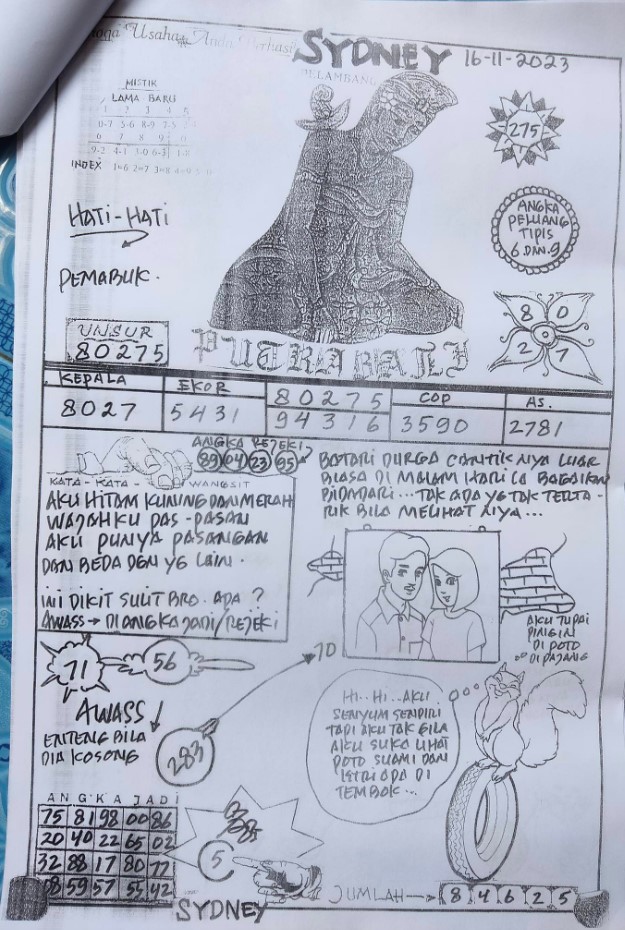 Usaha Anda Berhasil
SYDNEY 16-11-2023
PELAMBANG
MISTIK
LAMA BARU
1 2 3 4 5
0-7 5-6 8-9 2-5
6 7 8 9
9-2 4-1 3-0 6-3
INDEX 1=6 2=7 3=8 4=9
275
HATI-HATI
PEMABUK.
ANGKA
PELUANG
TIPIS
6 DAN 9
UNSUR
80275
PUTRA BALI
8 0
2 7
KEPALA
8027
EKOR
5431
80275
94316
COP
3590
AS.
2781
ANGKA REJEKI
89 04 23 95
KATA - KATA - WANGSIT
AKU HITAM KUNING DAN MERAH
WAJAHKU PAS-PASAN
AKU PUNYA PASANGAN
DAN BEDA DGN YG LAIN.
INI DIKIT SULIT BRO. ADA ?
AWASS → DIANGKA JADI/REJEKI
BATARI DURGA CANTIKNYA LUAR
BIASA DI MALAM HARI LA BAGAIKAN
BIDADARI... TAK ADA YG TAK TERTA-
RIK BILA MELIHATNYA...
AKU TUPAI
PINGIN
DI POTO
DI PAJANG
71
56
70
AWASS
ENTENG BILA
DIA KOSONG
283
HI..HI..AKU
SENYUM SENDIRI
TAPI AKU TAK GILA
AKU SUKA LIHAT
POTO SUAMI DAN
ISTRI ADA DI
TEMBOK...
ANGKA JADI
75 81 98 00 86
20 40 22 65 02
32 88 17 80 77
08 59 57 55 42
5
SYDNEY
JUMLAH → 8 4 6 2 5